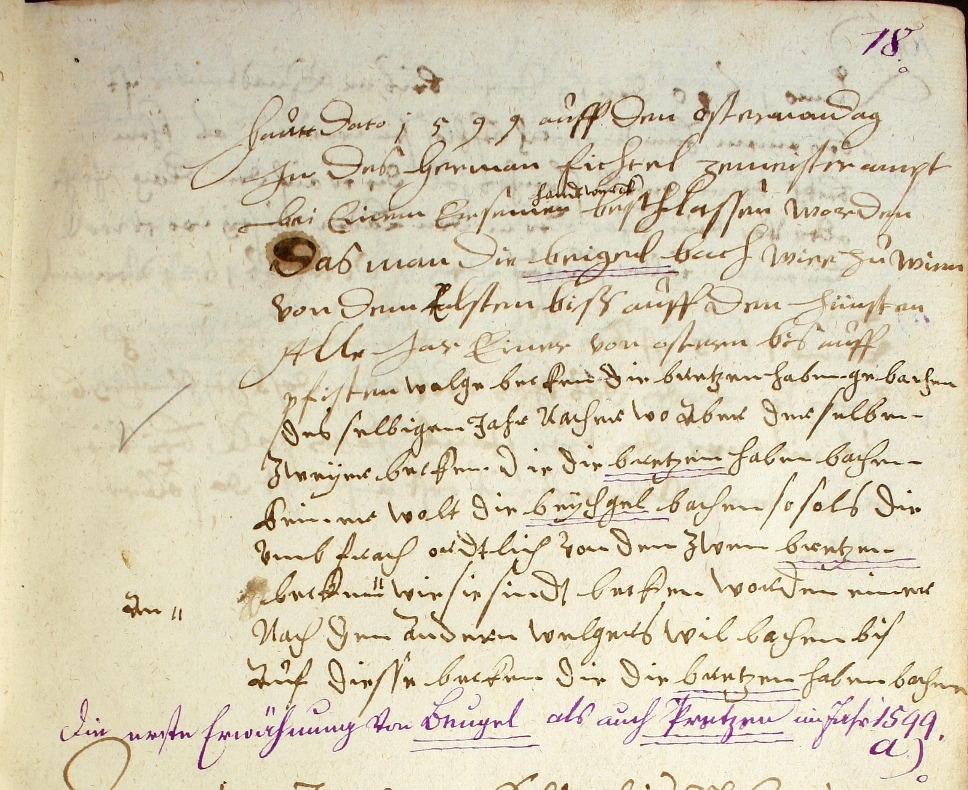 18.
heütt dato 1599 aüff den ostermondag
In des herman Eichtel zemeister ampt
handtwerck
bei Einem beschlassen worden
Das man die beigel bach wier
von dem Elsten biss aüff den hünsten
Alle Jar Einer von ostern bis aüff
pfisten welge becken die bretzen haben gebachen
des selbigen Jahr Nacher wo aber der selben
Zweyer becken die die bretzen haben bachen
keinner wolt die beychgel bachen so sols die
vmb frach ordtlich von den zwen bretzen
becken wie sie sindt becken worden einer
Nach dem andern welgers wil bachen bis
auf diesse becken die die bretzen haben bachen
Die erste Erwähnung von Beugel als auch Pretzen im Jahr 1599.
a)